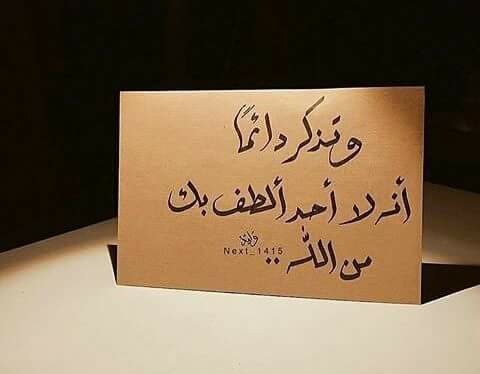 وتذكر دائمًا
أنه لا أحد ألطف بك
من الله ..
وليد
Next_1415